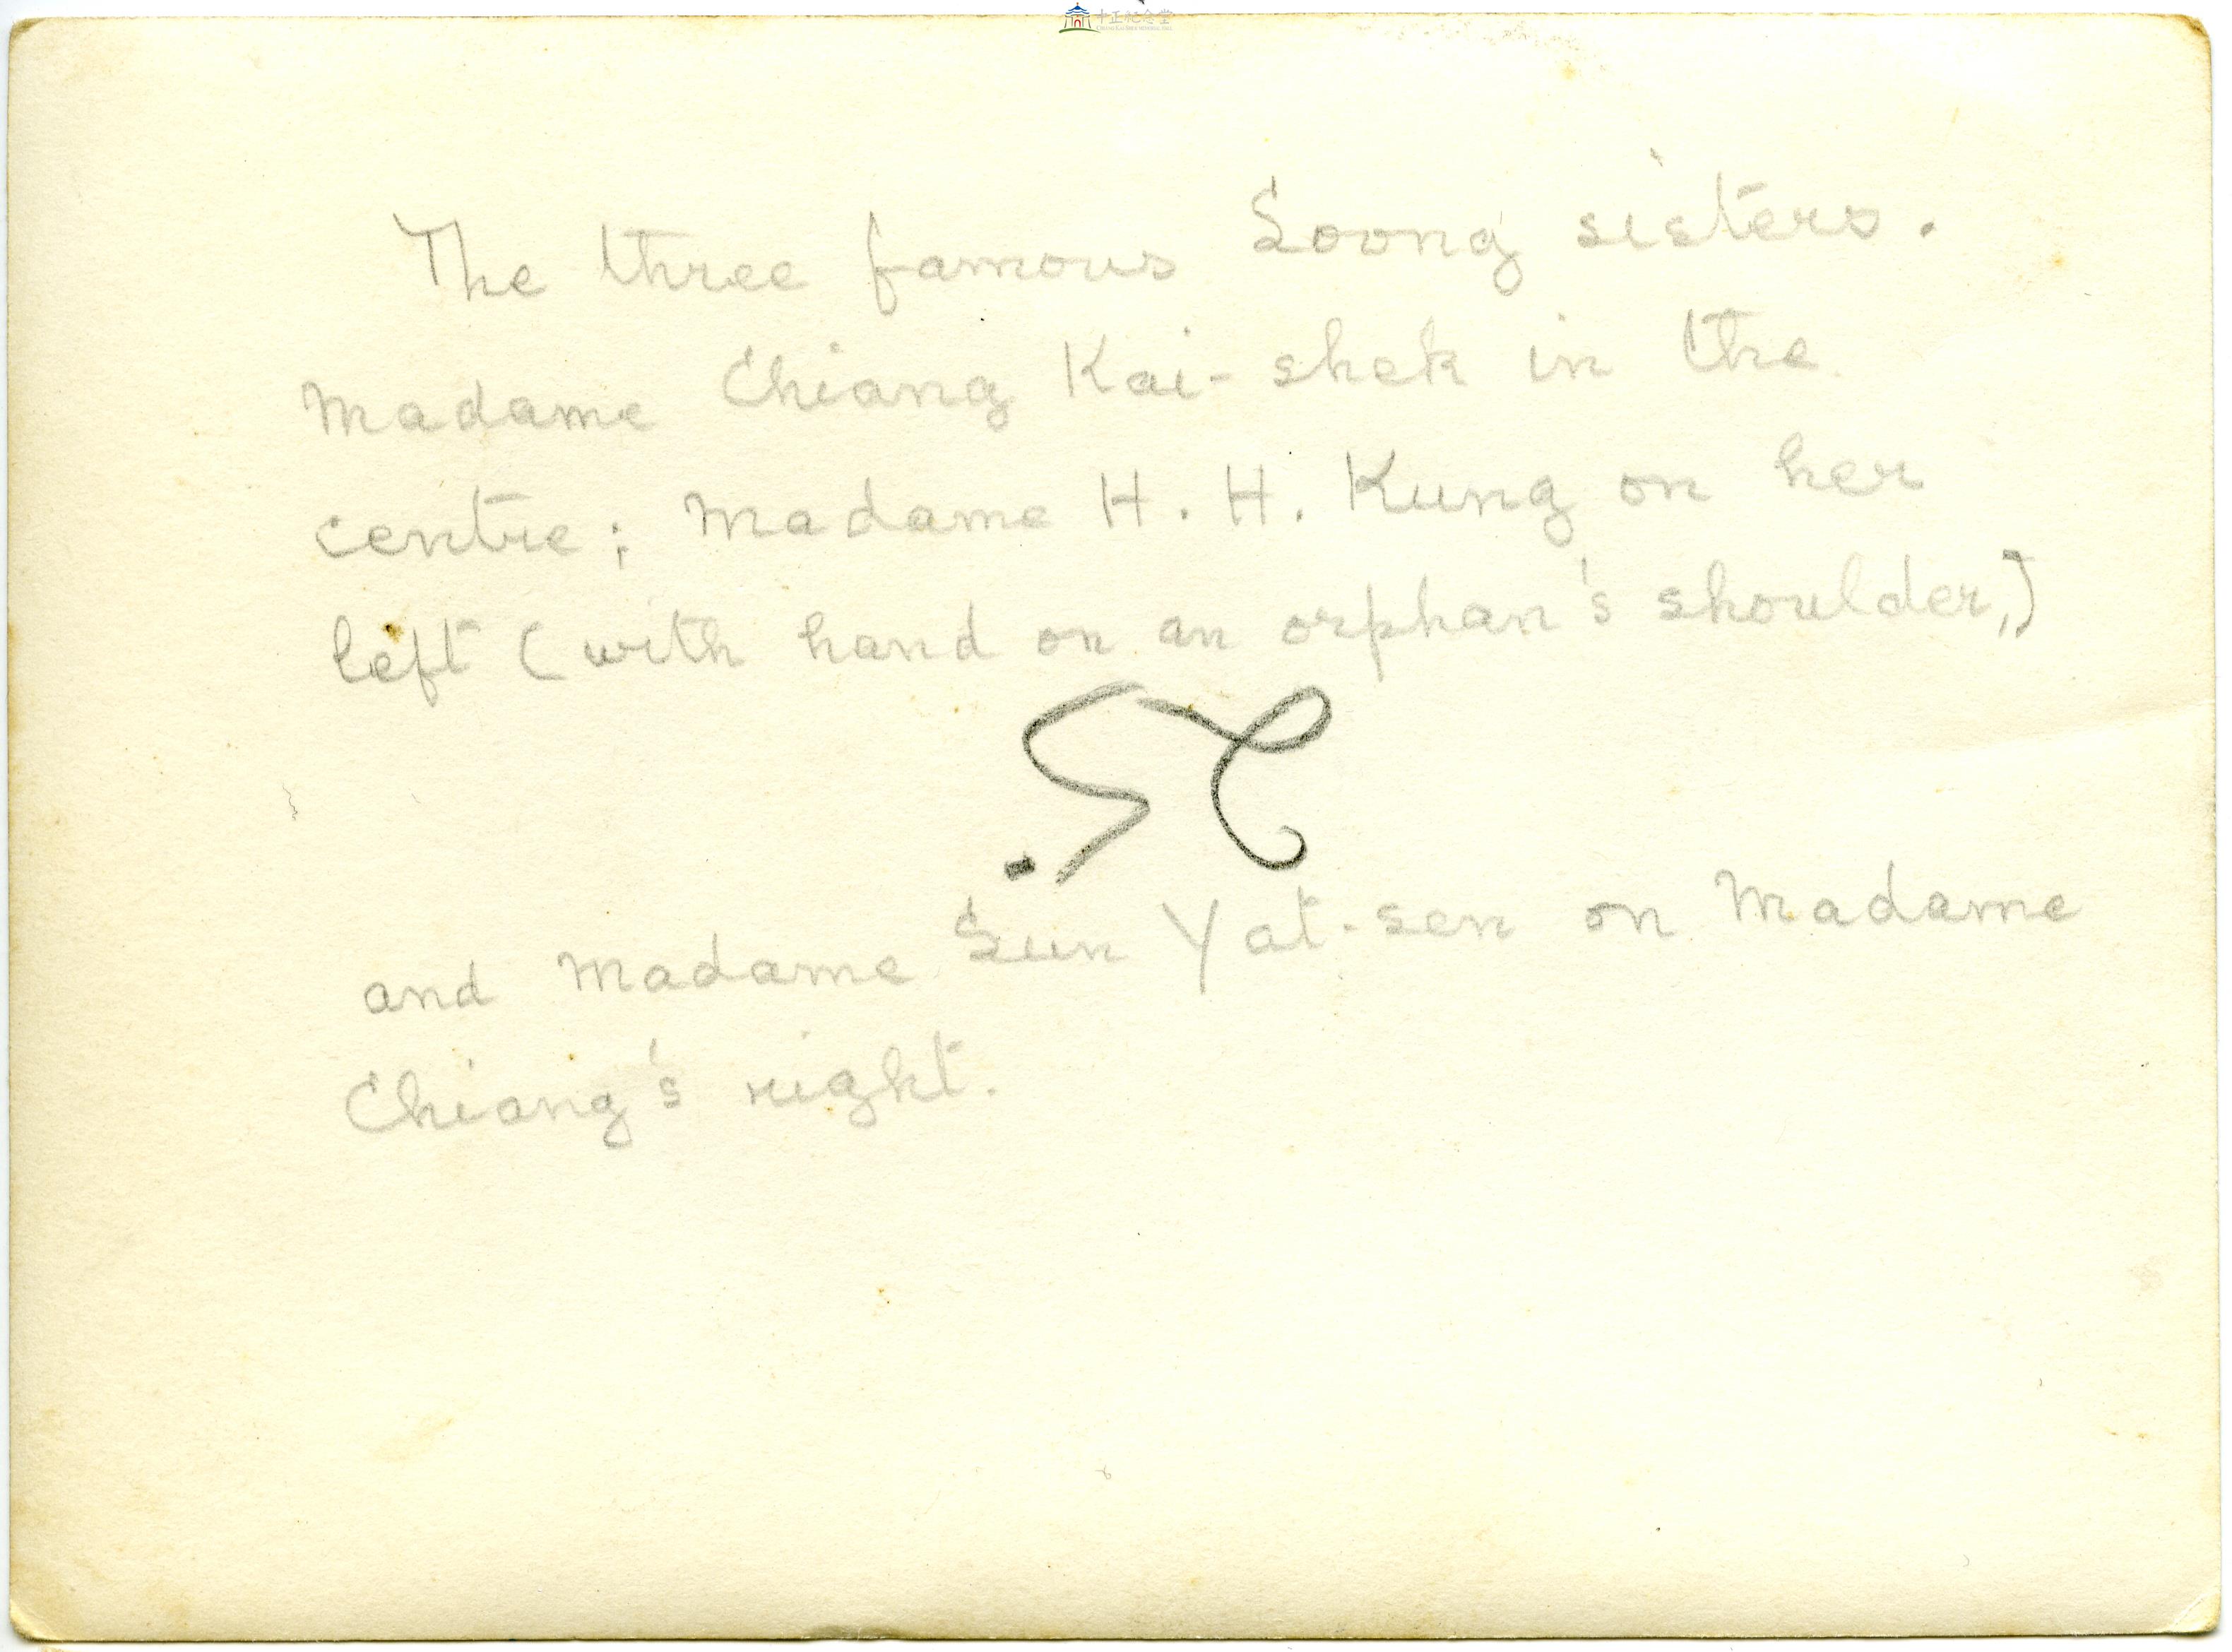 中正紀念堂
The three famous Soong sisters.
Madame Chiang Kai-shek in the
centre; Madame H. H. Kung on her
left (with hand on an orphan's shoulder,)
and Madame Sun Yat-sen on Madame
Chiang's right.